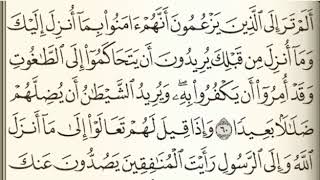 أَلَمْ تَرَ إِلَى ٱلَّذِينَ يَزْعُمُونَ أَنَّهُمْ ءَامَنُوا۟ بِمَآ أُنزِلَ إِلَيْكَ
وَمَآ أُنزِلَ مِن قَبْلِكَ يُرِيدُونَ أَن يَتَحَاكَمُوٓا۟ إِلَى ٱلطَّٰغُوتِ
وَقَدْ أُمِرُوٓا۟ أَن يَكْفُرُوا۟ بِهِۦ وَيُرِيدُ ٱلشَّيْطَٰنُ أَن يُضِلَّهُمْ
ضَلَٰلًۢا بَعِيدًا ٦٠ وَإِذَا قِيلَ لَهُمْ تَعَالَوْا۟ إِلَىٰ مَآ أَنزَلَ
ٱللَّهُ وَإِلَى ٱلرَّسُولِ رَأَيْتَ ٱلْمُنَٰفِقِينَ يَصُدُّونَ عَنكَ